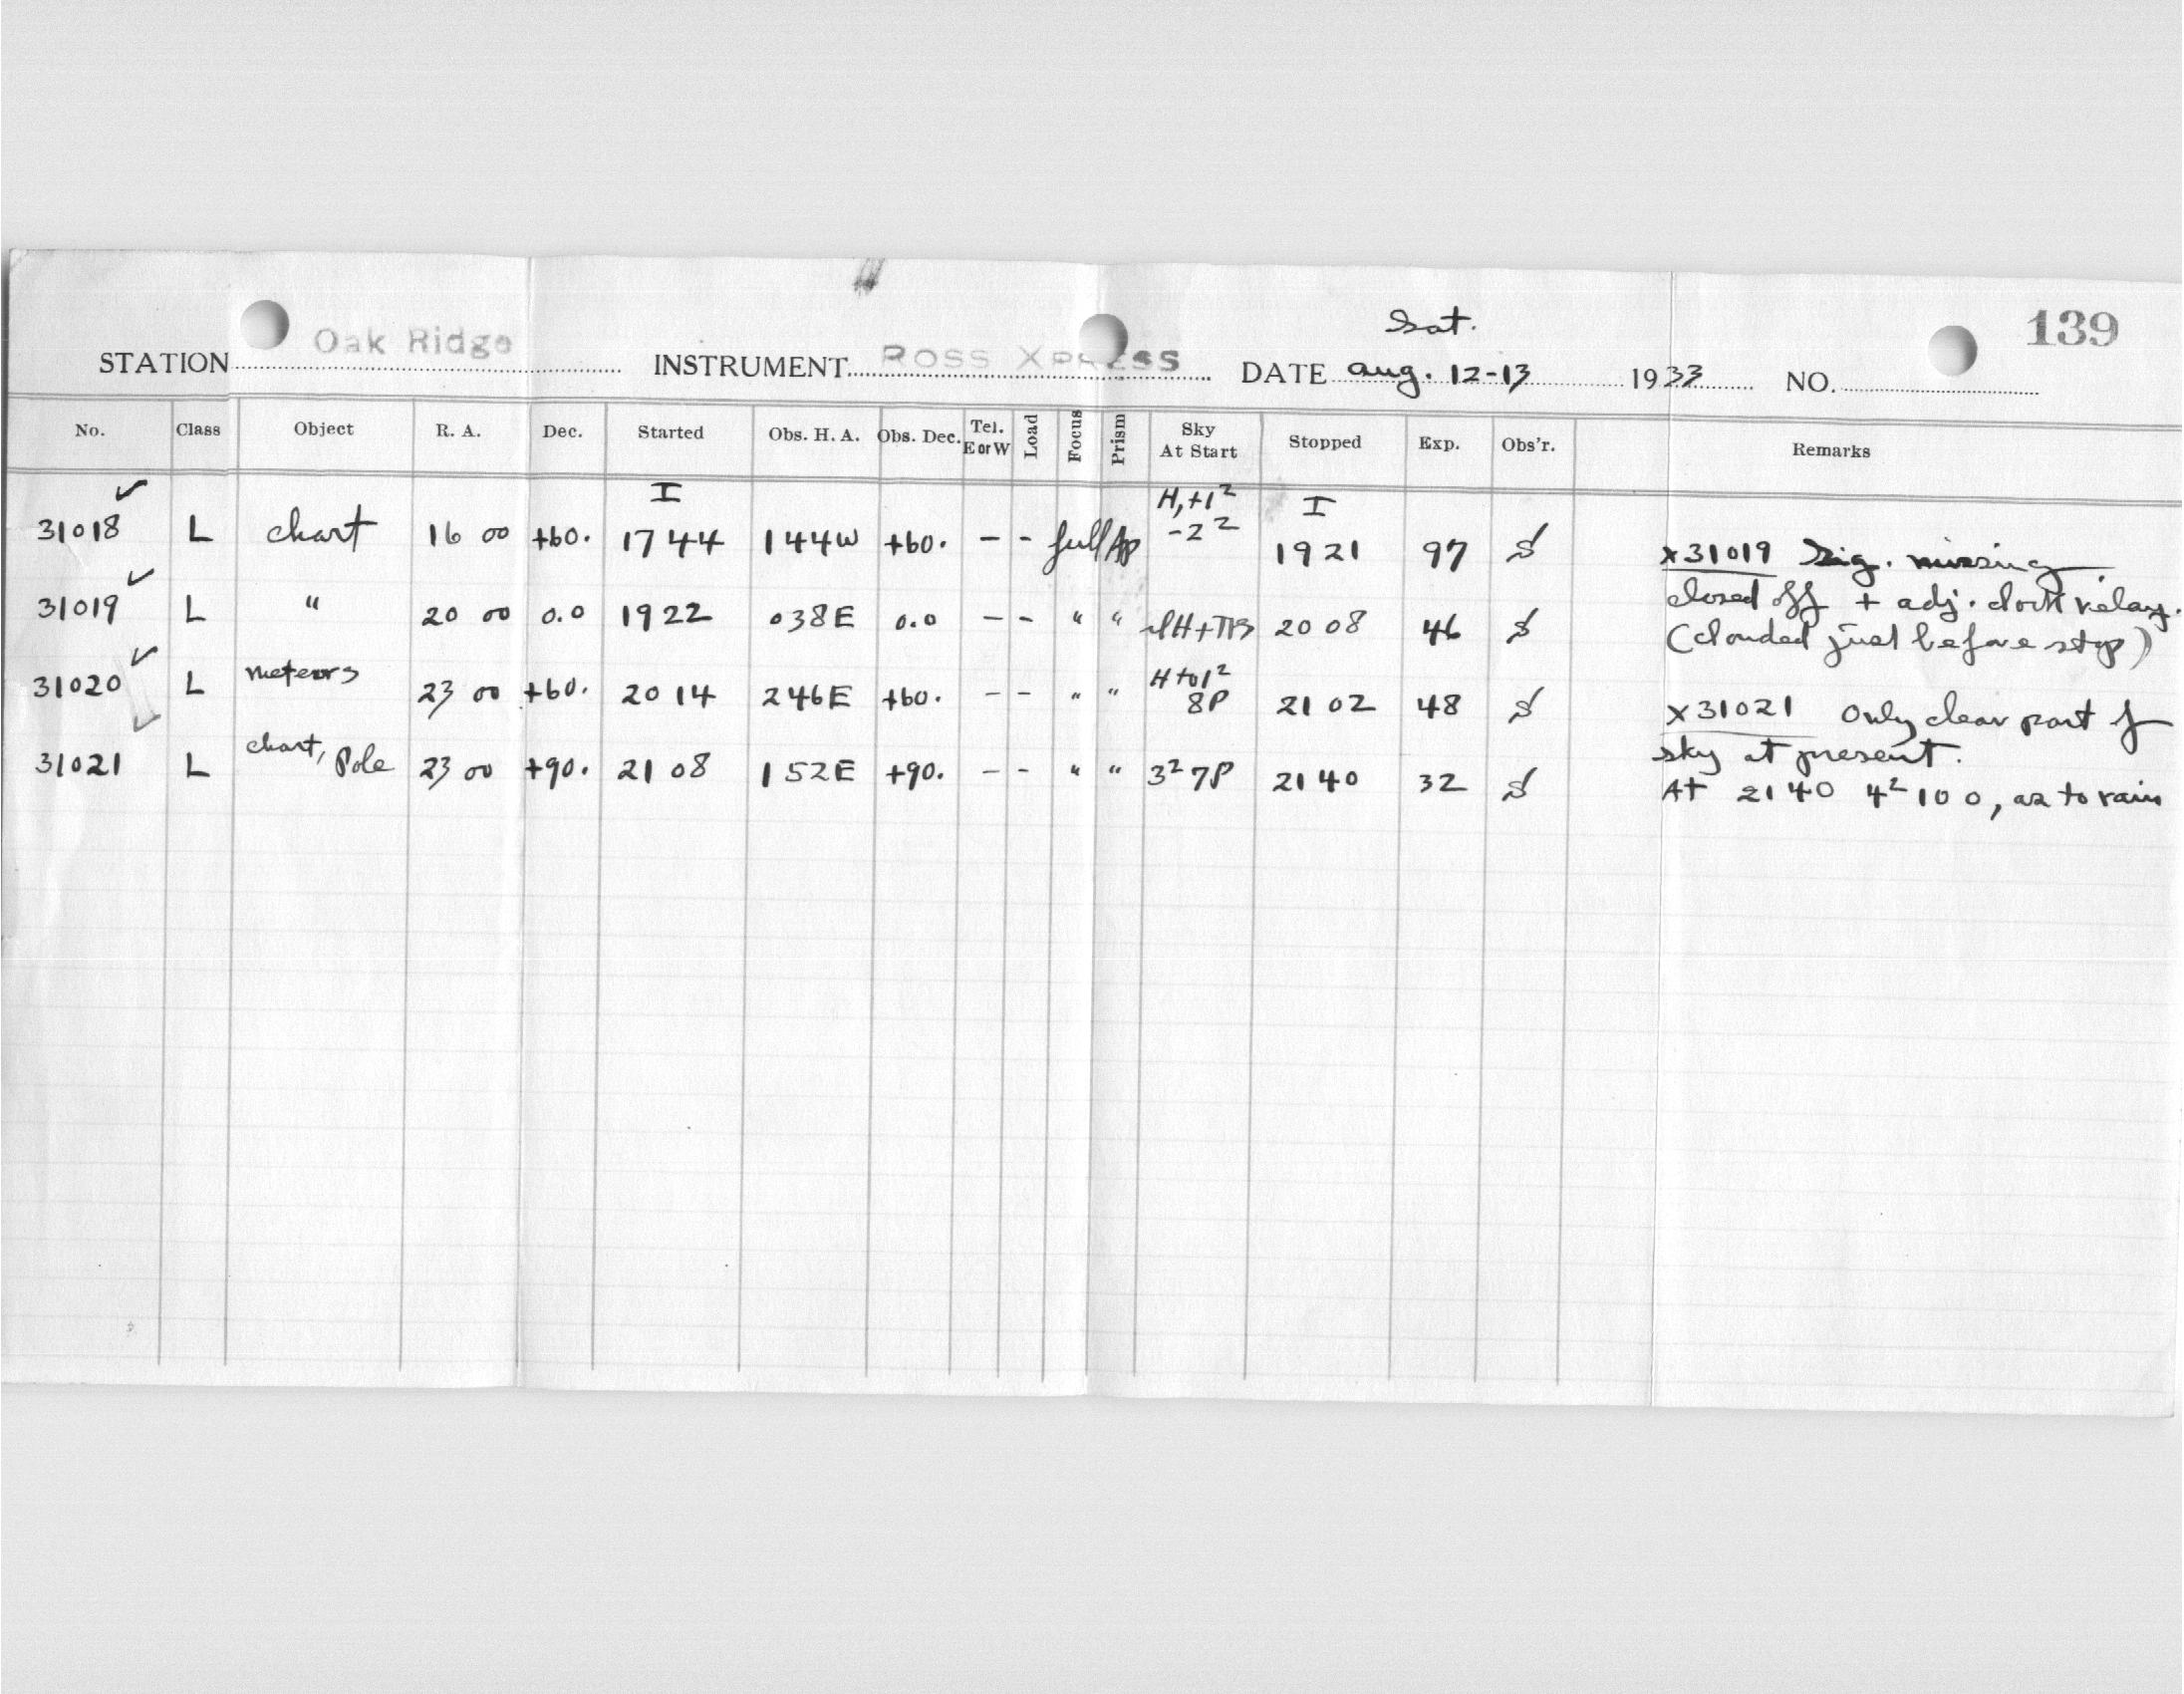 139
Sat.
STATION Oak Ridge INSTRUMENT ROSS XPRESS DATE Aug. 12-13 1933 NO.
No. Class Object R. A. Dec. Started Obs. H. A. Obs. Dec. Tel. E or W Load Focus Prism Sky At Start Stopped Exp. Obs'r. Remarks
I H, +1² I
31018 L chart 16 00 +60. 1744 144W +60. - - full Ap -2² 1921 97 S x31019 Sig. missing
31019 L " 20 00 0.0 1922 038E 0.0 - - " " 2008 46 S closed off + adj. clock relay.
(clouded just before stop)
31020 L meteors 23 00 +60. 2014 246E +60. - - " " H to 1² 8P 2102 48 S x31021 Only clear part of
sky at present.
31021 L chart, Pole 23 00 +90. 2108 152E +90. - - " " 3² 7P 2140 32 S At 2140 4² 100, as to rain